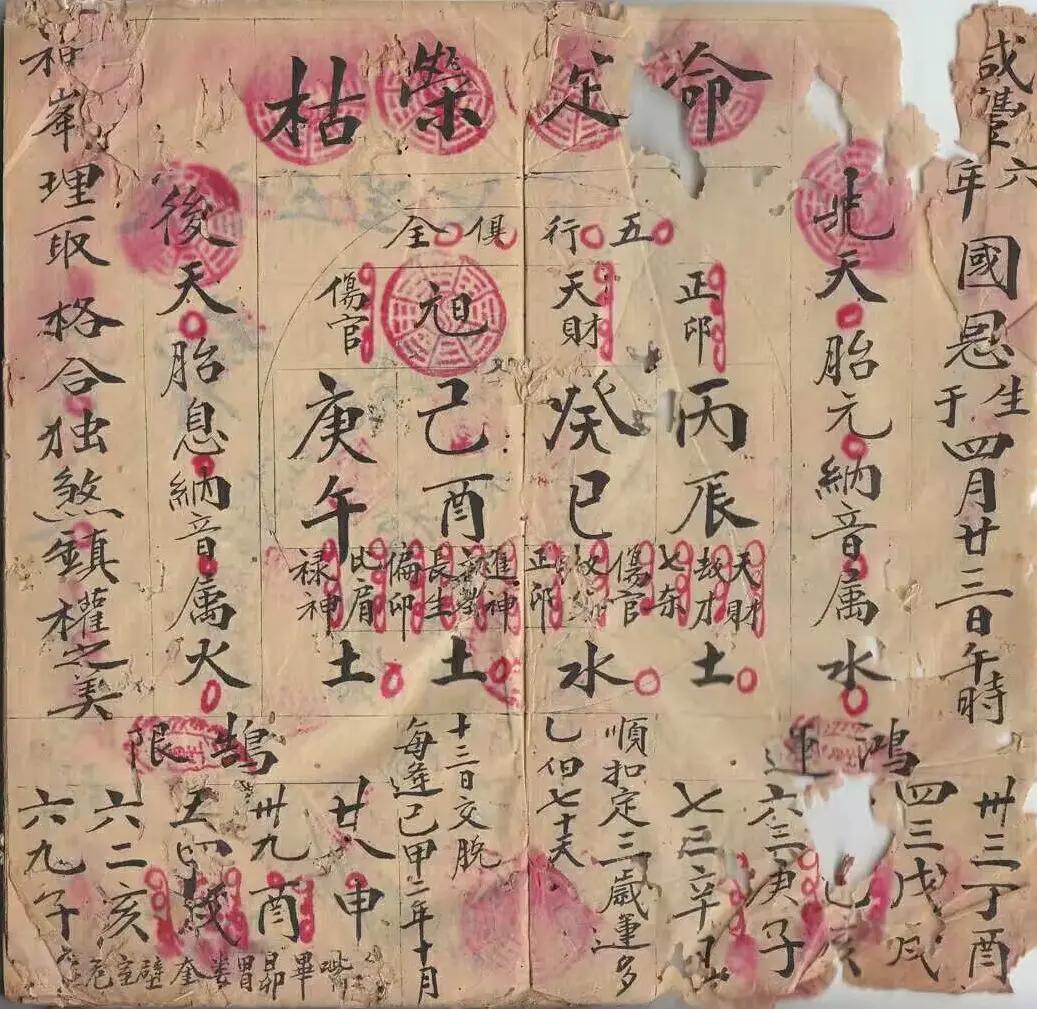 咸豐六年國恩生于四月廿三日午時
命定榮枯
先天胎元納音属水
五行俱全
正印
天財
旭
傷官
丙辰
癸巳
己酉
庚午
天財
劫才
七杀
傷官
正印
進神
長生
偏印
比肩
禄神
土
水
土
土
後天胎息納音属火
理取格合独煞鎮權之美
鴻運
卅三丁酉
四三戊戌
己亥
六三庚子
七三辛丑
順扣定三歲運多
七十天
十三日交脫
每逢己甲二年十月
鵠限
廿八申
卅九酉
五戌
六二亥
六九子
畢昴胃娄奎壁室危